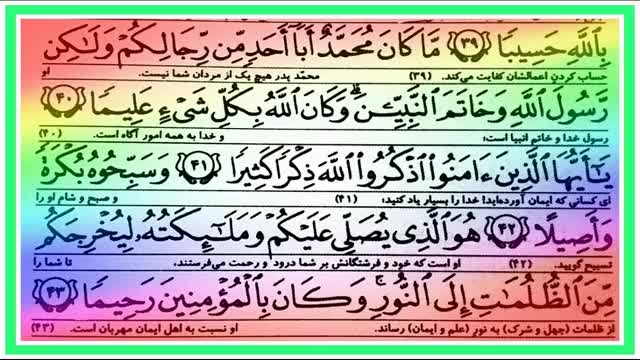 بِاللَّهِ حَسِيبًا ﴿۳۹﴾ مَّا كَانَ مُحَمَّدٌ أَبَا أَحَدٍ مِّن رِّجَالِكُمْ وَلَٰكِن
حساب کردن اعمالشان کفایت می‌کند. (۳۹) محمّد پدر هیچ یک از مردان شما نیست. او
رَّسُولَ اللَّهِ وَخَاتَمَ النَّبِيِّـۧنَ ۗ وَكَانَ اللَّهُ بِكُلِّ شَيْءٍ عَلِيمًا ﴿۴۰﴾
رسول خدا و خاتم انبیا است؛ و خدا به همه امور آگاه است. (۴۰)
يَـٰٓأَيُّهَا الَّذِينَ ءَامَنُوا اذْكُرُوا اللَّهَ ذِكْرًا كَثِيرًا ﴿۴۱﴾ وَسَبِّحُوهُ بُكْرَةً
ای کسانی که ایمان آورده‌اید! خدا را بسیار یاد کنید؛ (۴۱) و صبح و شام او را
وَأَصِيلًا ﴿۴۲﴾ هُوَ الَّذِي يُصَلِّي عَلَيْكُمْ وَمَلَـٰٓئِكَتُهُۥ لِيُخْرِجَكُم
تسبیح گویید. (۴۲) او است که خود و فرشتگانش بر شما درود و رحمت می‌فرستند، تا شما را
مِّنَ الظُّلُمَـٰتِ إِلَى النُّورِ ۚ وَكَانَ بِالْمُؤْمِنِينَ رَحِيمًا ﴿۴۳﴾
از ظلمات (جهل و شرک) به نور (علم و ایمان) رساند. او نسبت به اهل ایمان مهربان است. (۴۳)